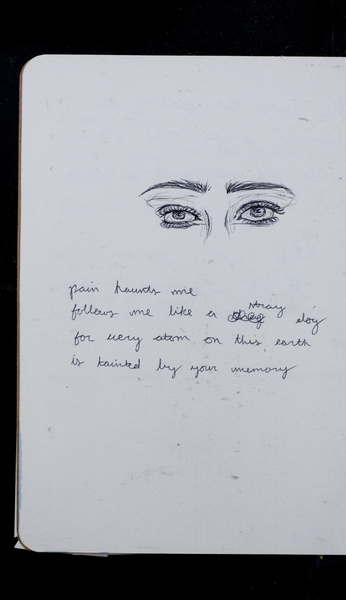 pain haunts me
follows me like a stray dog
for every atom on this earth
is tainted by your memory